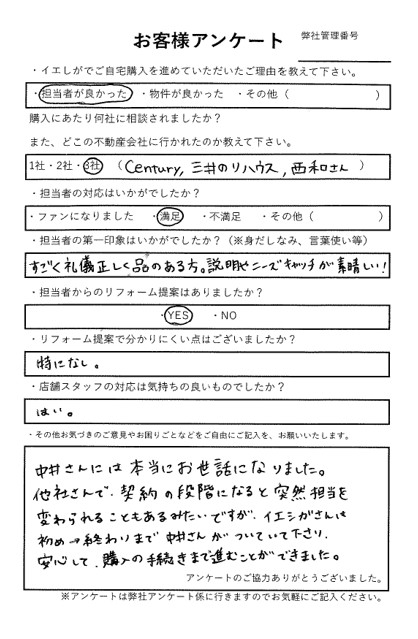 お客様アンケート
弊社管理番号
・イエしがでご自宅購入を進めていただいたご理由を教えて下さい。
・担当者が良かった ・物件が良かった ・その他（ ）
購入にあたり何社に相談されましたか？
また、どこの不動産会社に行かれたのか教えて下さい。
1社・2社・3社 （ Century, 三井のリハウス, 西和さん ）
・担当者の対応はいかがでしたか？
・ファンになりました ・満足 ・不満足 ・その他（ ）
・担当者の第一印象はいかがでしたか？（※身だしなみ、言葉使い等）
すごく礼儀正しく品のある方。説明やニーズキャッチが素晴しい！
・担当者からのリフォーム提案はありましたか？
・YES ・NO
・リフォーム提案で分かりにくい点はございましたか？
特になし。
・店舗スタッフの対応は気持ちの良いものでしたか？
はい。
・その他お気づきのご意見やお困りごとなどをご自由にご記入を、お願いいたします。
中井さんには本当にお世話になりました。
他社さんで、契約の段階になると突然担当を
変わられることもあるみたいですが、イエシガさんは
初め→終わりまで中井さんがついていて下さり、
安心して、購入の手続きまで進むことができました。
アンケートのご協力ありがとうございました。
※アンケートは弊社アンケート係に行きますのでお気軽にご記入ください。